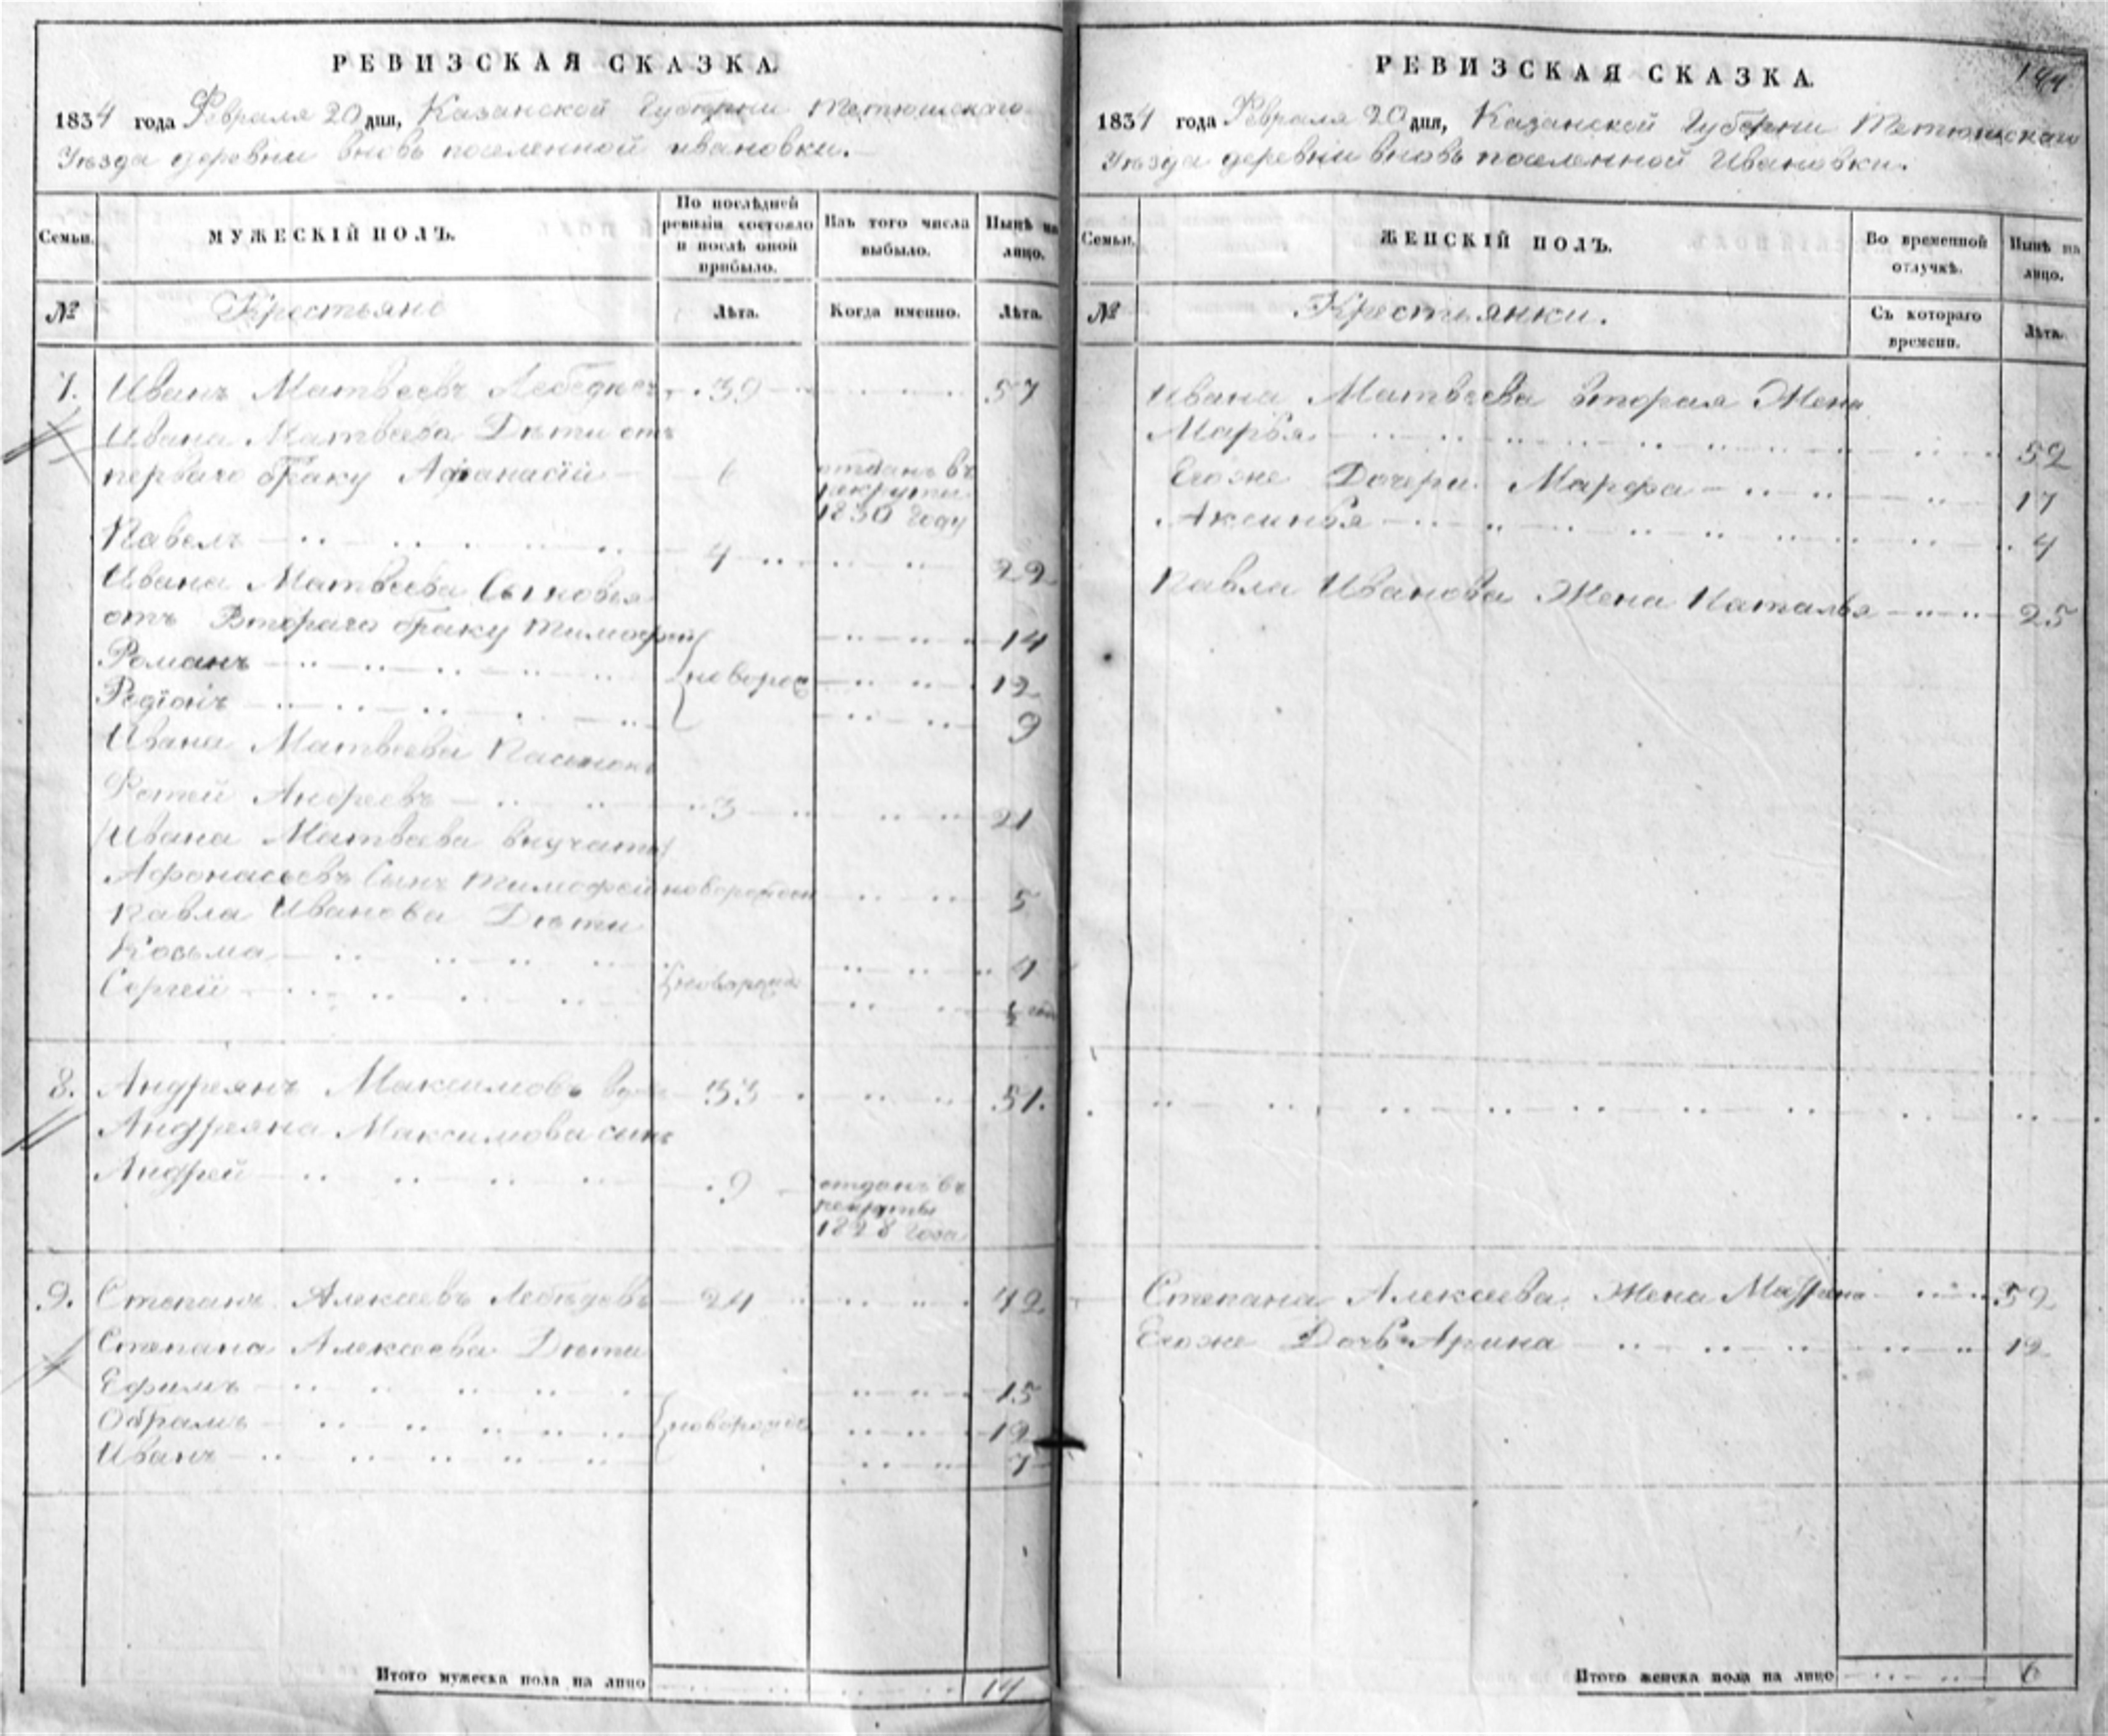 РЕВИЗСКАЯ СКАЗКА.
1834 года Февраля 20 дня, Казанской Губернии Тетюшскаго
Уезда деревни вновь поселенной ивановки.
Семьи.
МУЖЕСКІЙ ПОЛЪ.
По послѣдней ревизіи состояло и послѣ оной прибыло.
Изъ того числа выбыло.
Нынѣ на лицо.
№
Крестьяне
Лѣта.
Когда именно.
Лѣта.
7. Иванъ Матвеевъ 39 57
Ивана Матвеева Дети отъ
перваго браку Афанасій 6 отданъ въ
рекруты
1830 году
Павелъ 4 22
Ивана Матвеева Сыновья
отъ Втораго браку Тимофей 14
Романъ 12
Родіонъ 9
Ивана Матвеева Пасынокъ
Фотей Андреевъ 3 21
Ивана Матвеева внучаты
Афонасьевъ Сынъ Тимофей 5
Павла Иванова Дети
Козьма 4
Сергей 1/2
8. Андреянъ Максимовъ 33 51.
Андреяна Максимова сынъ
Андрей 9 отданъ въ
рекруты
1828 года
9. Степанъ Алексеевъ Лебедевъ 24 42
Степана Алексеева Дети
Ефимъ 15
Обрамъ 12
Иванъ 7
Итого мужеска пола на лицо 14
РЕВИЗСКАЯ СКАЗКА.
1834 года Февраля 20 дня, Казанской Губернии Тетюшскаго
Уезда деревни вновь поселенной Ивановки.
Семьи.
ЖЕНСКІЙ ПОЛЪ.
Во временной отлучкѣ.
Нынѣ на лицо.
№
Крестьянки.
Съ котораго времени.
Лѣта.
Ивана Матвеева вторая Жена
Марья 52
Егоже Дочери Марфа 17
Аксинья 4
Павла Иванова Жена Наталья 25
Степана Алексеева Жена
Егоже Дочь Арина 12
Итого женска пола на лицо 6